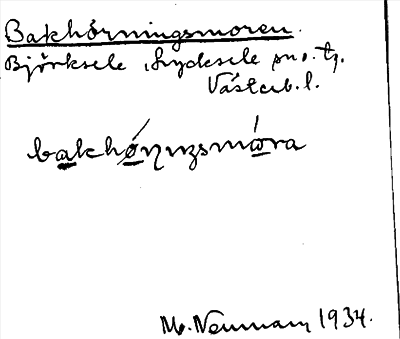 Bakhörningsmoren.
Björksele, Lycksele sn o. tg.
Västerb. l.
bakhǿŋɪŋsmóra
M. Neuman 1934.